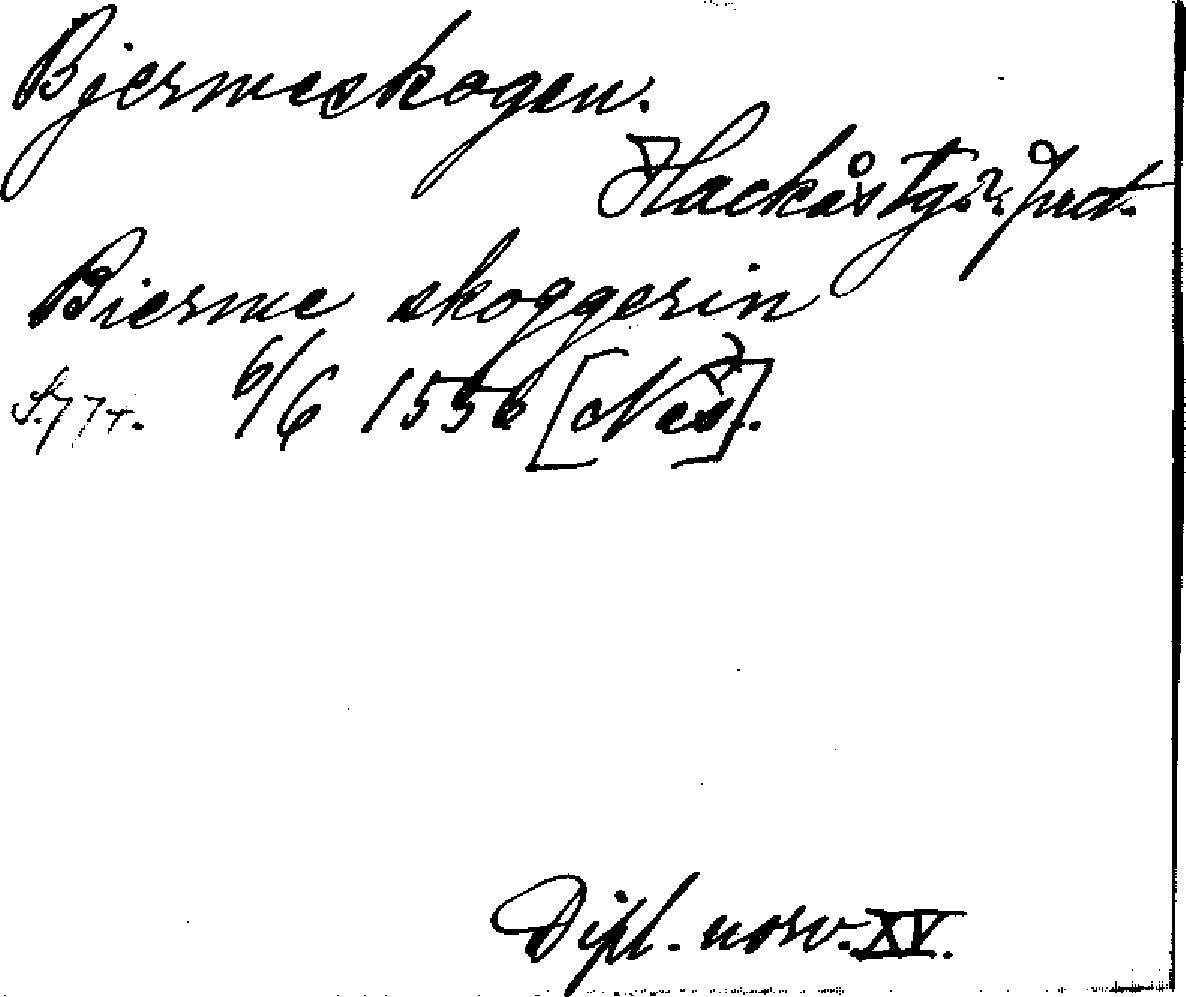 Bjermeskogen.
Hackås tg.
Bierme skoggerin
S. 774. 6/6 1556 [Näs].
Dipl. norv. XV.